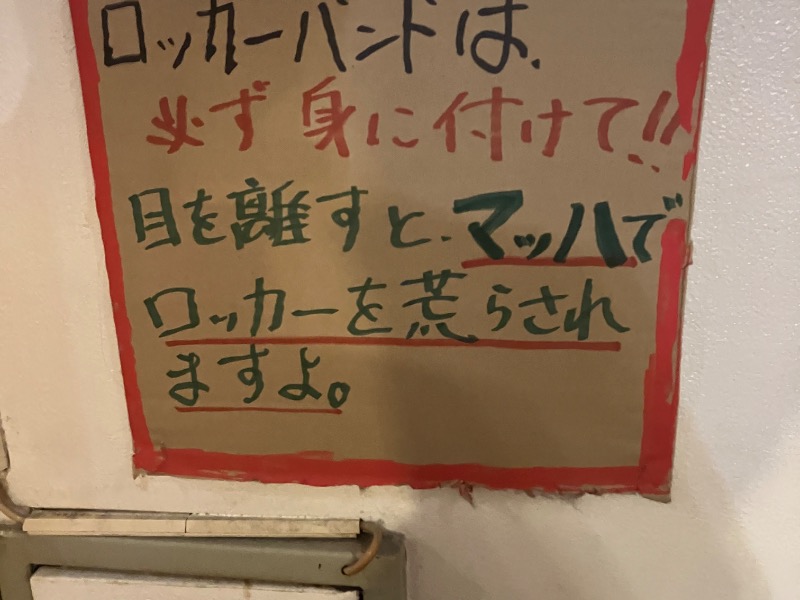 ロッカーバンドは、
必ず身に付けて!!
目を離すと、マッハで
ロッカーを荒らされ
ますよ。